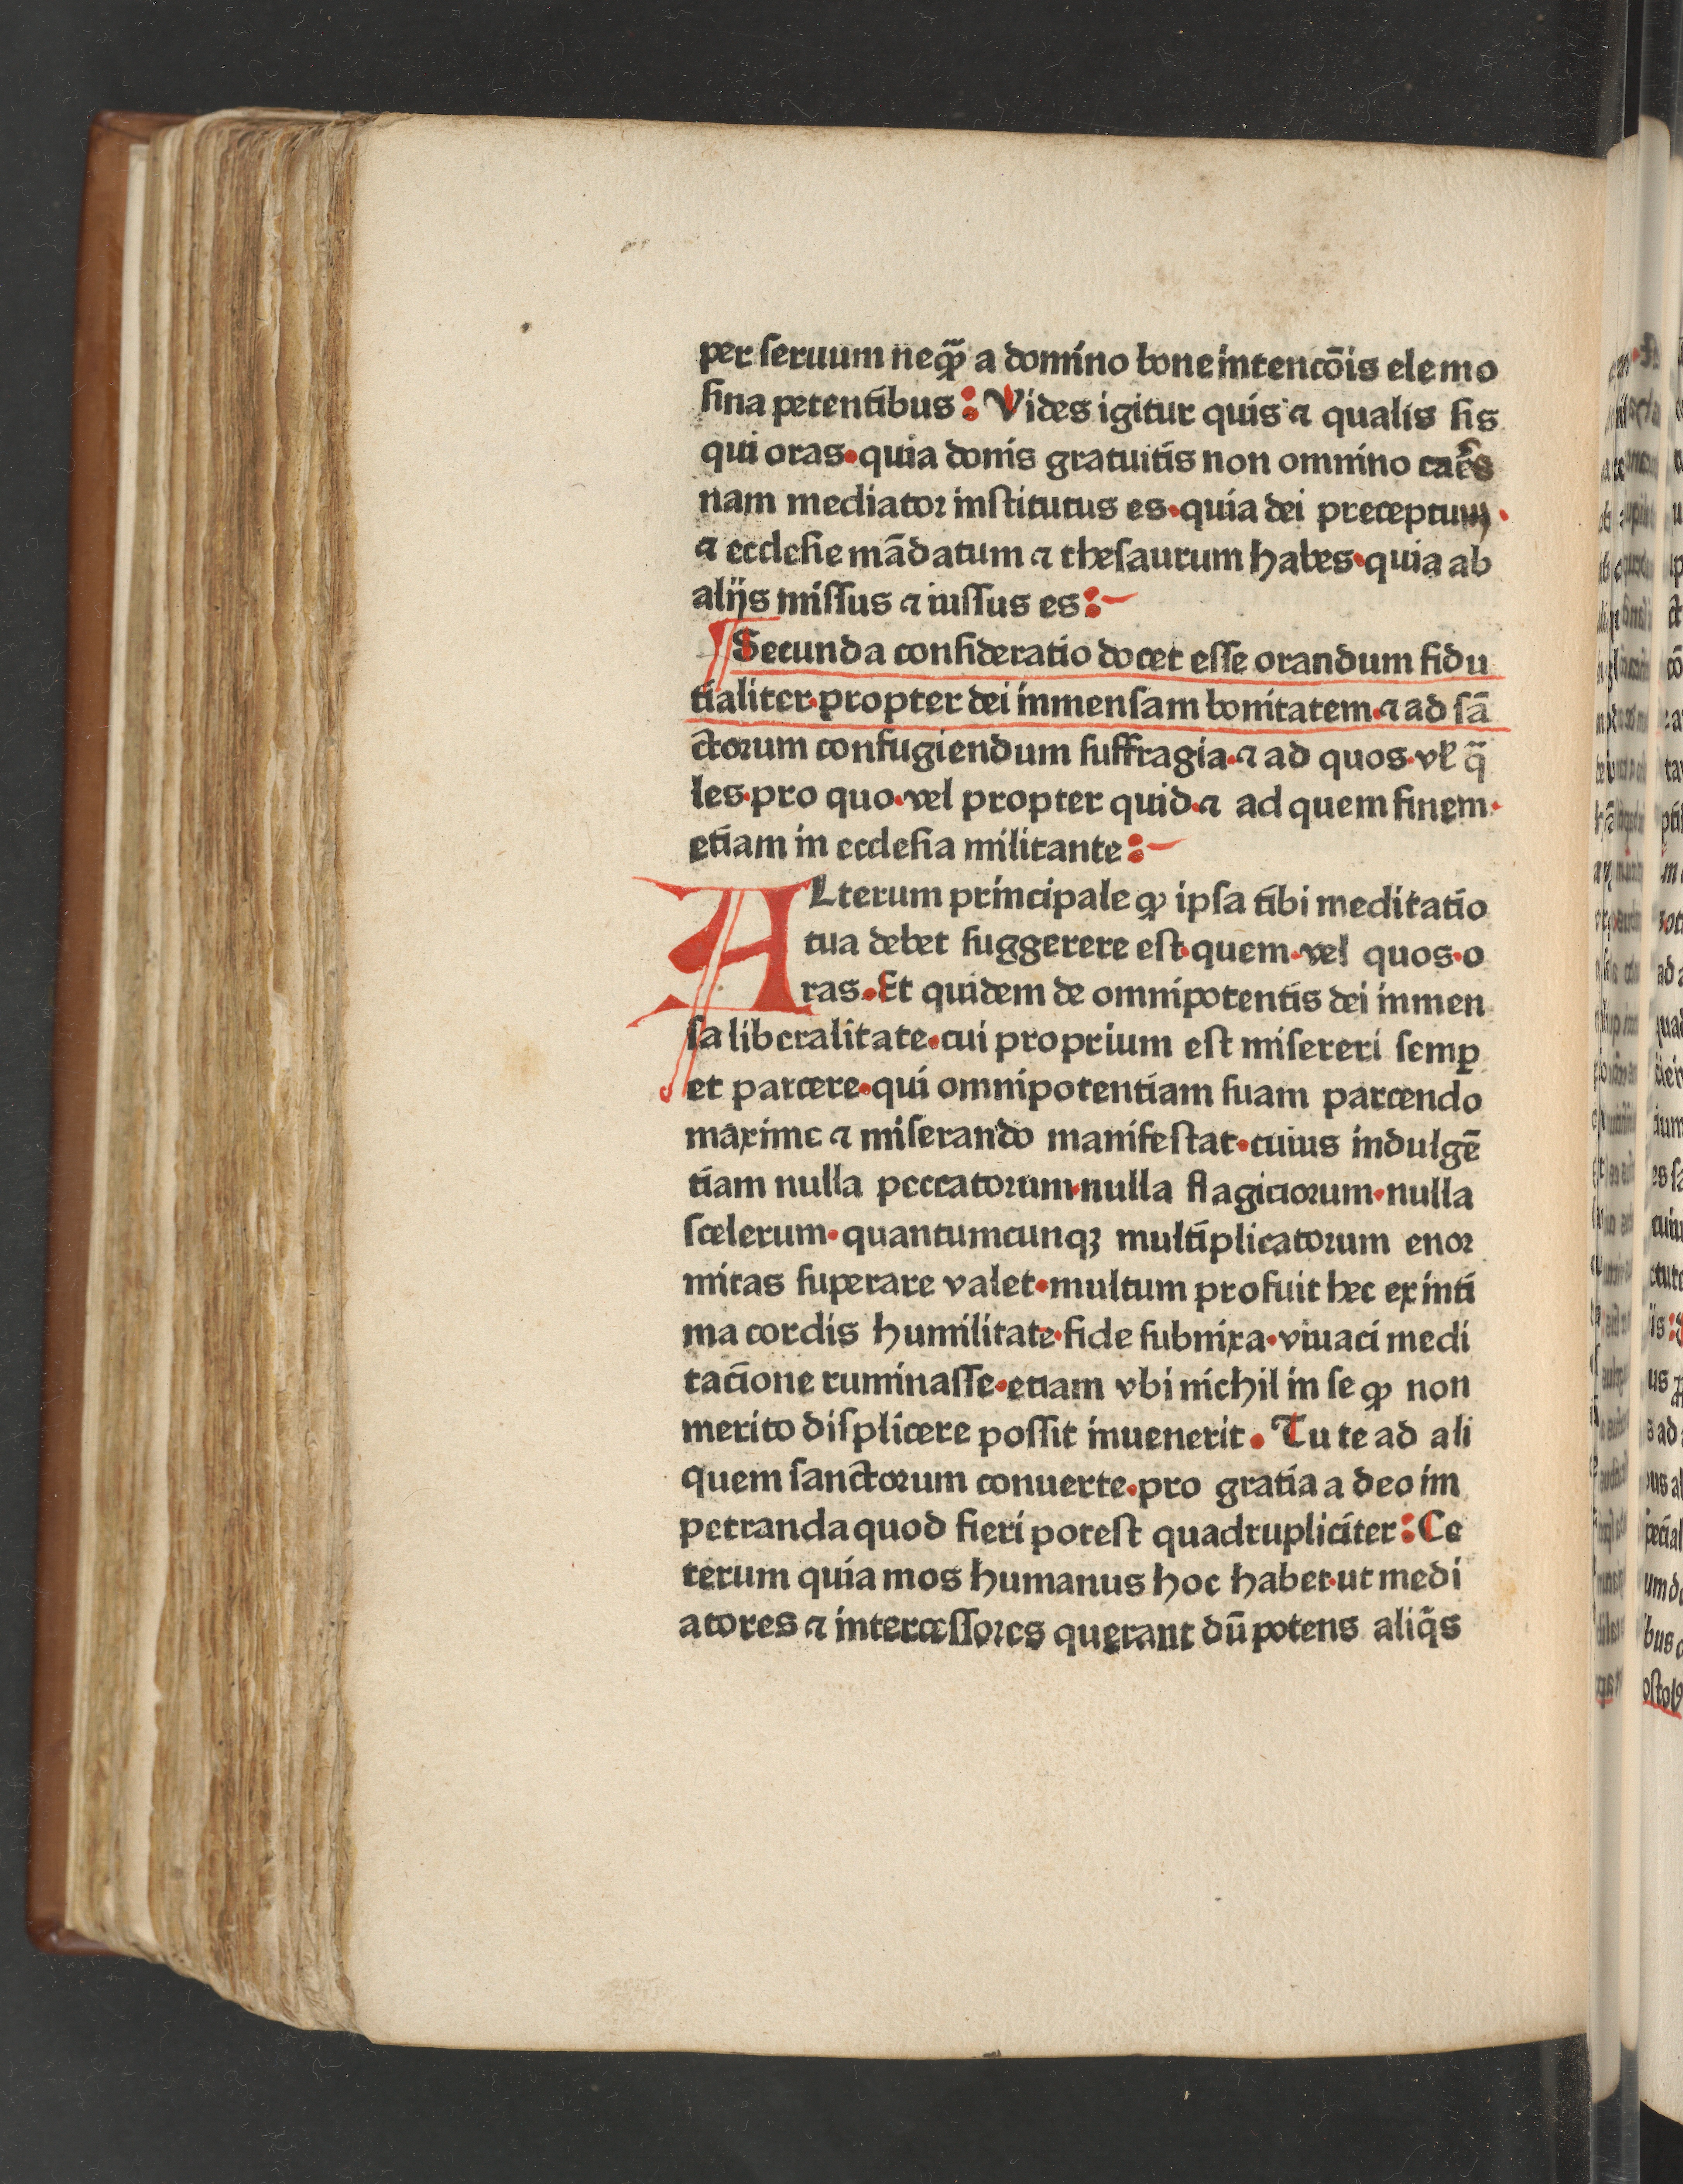 per seruum neqꝫ̄ a domino bone intencōis elemo
sina petentibus: Vides igitur quis ⁊ qualis sis
qui oras·quia donis gratuitis non omnino carēs
nam mediator institutus es·quia dei preceptum·
⁊ ecclesie mādatum ⁊ thesaurum habes·quia ab
alijs missus ⁊ iussus es:
Secunda consideratio docet esse orandum fidu
tialiter·propter dei inmensam bonitatem·⁊ ad sā
ctorum confugiendum suffragia·⁊ ad quos·vl̄ q̄
les·pro quo·vel propter quid·⁊ ad quem finem·
etiam in ecclesia militante:
ALterum principale ꝙ ipsa tibi meditatio
tua debet suggerere est·quem·vel quos·o
ras·Et quidem de omnipotentis dei inmen
sa liberalitate·cui proprium est misereri semꝑ
et parcere·qui omnipotentiam suam parcendo
maxime ⁊ miserando manifestat·cuius indulgē
tiam nulla peccatorum·nulla flagiciorum·nulla
scelerum·quantumcunqꝫ multiplicatorum enor
mitas superare valet·multum profuit hec ex inti
ma cordis humilitate·fide subnixa·viuaci medi
tacione ruminasse·etiam vbi nichil in se ꝙ non
merito displicere possit inuenerit. Tu te ad ali
quem sanctorum conuerte·pro gratia a deo im
petranda quod fieri potest quadrupliciter: Ce
terum quia mos humanus hoc habet·ut medi
atores ⁊ intercessores querant dū potens aliq̄s